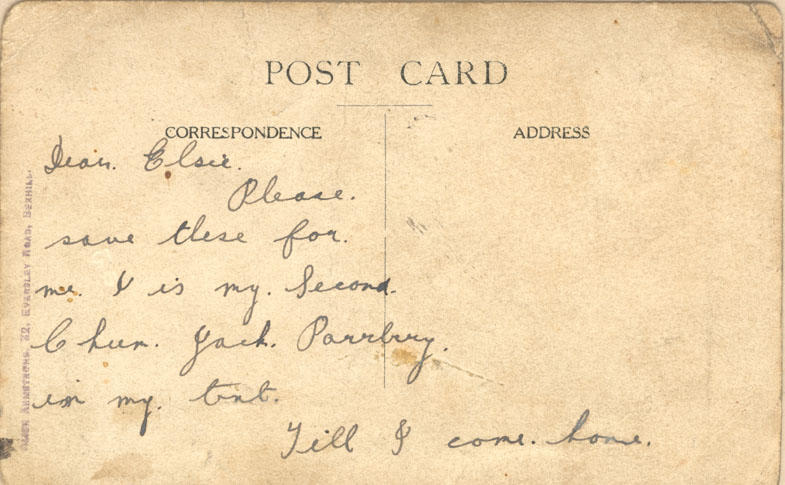 POST CARD
CORRESPONDENCE
ADDRESS
Dear. Elsie.
Please.
save these for.
me. & is my. Second.
Chum. Jack.
in my. tent.
Till I come. home.
ARMSTRONG, 22, EVERSLEY ROAD, BEXHILL.